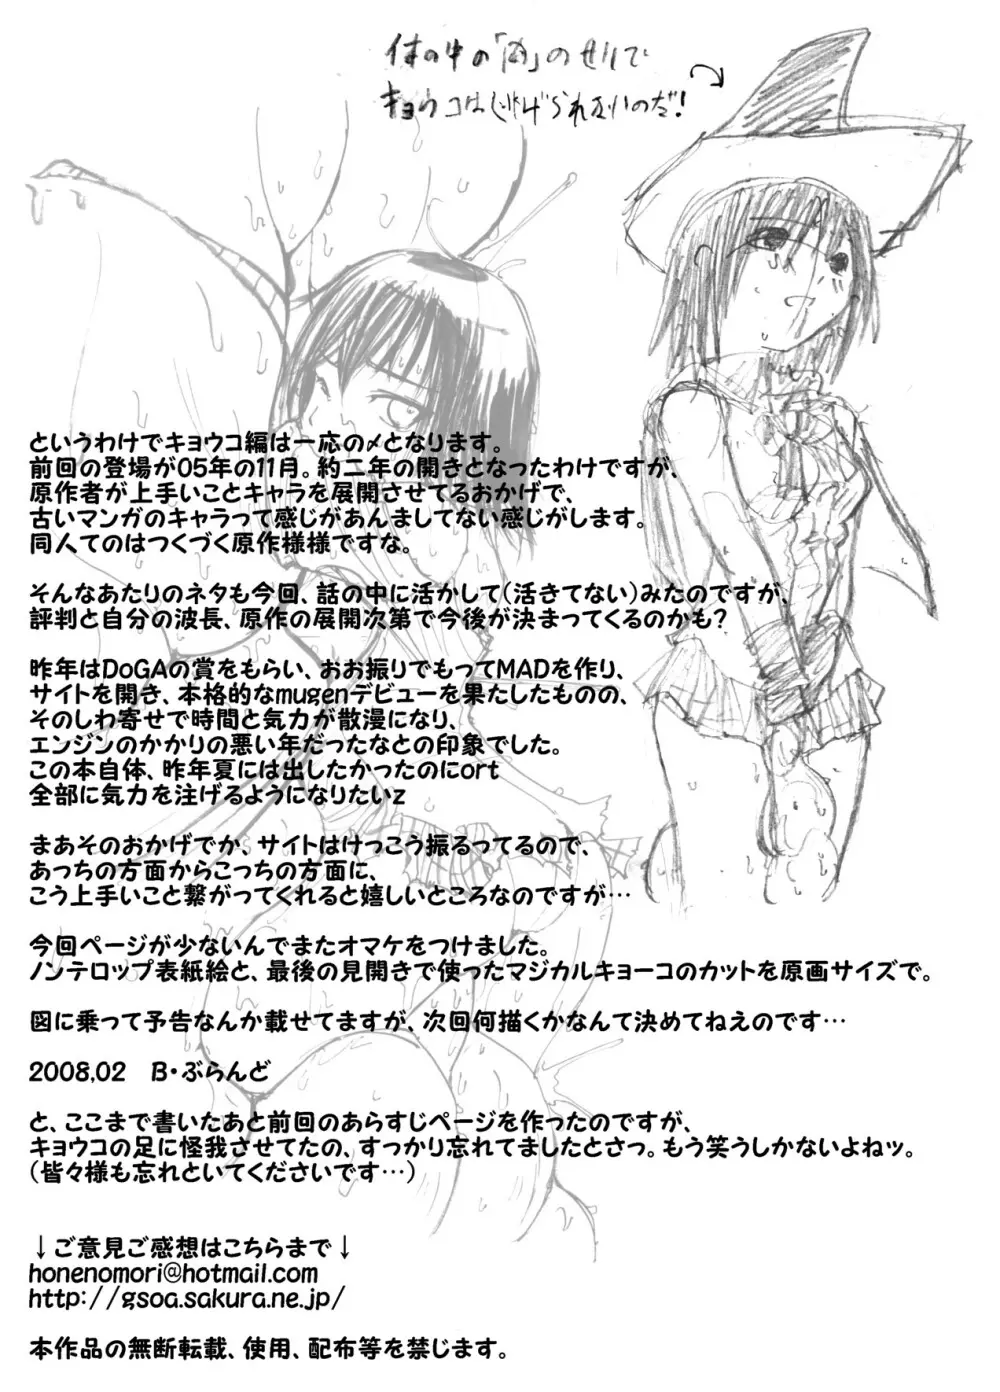 体の中の「凶」のせいで
キョウコは逃げられないのだ!
というわけでキョウコ編は一応の〆となります。
前回の登場が05年の11月。約二年の開きとなったわけですが、
原作者が上手いことキャラを展開させてるおかげで、
古いマンガのキャラって感じがあんましてない感じがします。
同人てのはつくづく原作様様ですな。
そんなあたりのネタも今回、話の中に活かして(活きてない)みたのですが、
評判と自分の波長、原作の展開次第で今後が決まってくるのかも?
昨年はDoGAの賞をもらい、おお振りでもってMADを作り、
サイトを開き、本格的なmugenデビューを果たしたものの、
そのしわ寄せで時間と気力が散漫になり、
エンジンのかかりの悪い年だったなとの印象でした。
この本自体、昨年夏には出したかったのにort
全部に気力を注げるようになりたいz
まあそのおかげでか、サイトはけっこう振るってるので、
あっちの方面からこっちの方面に、
こう上手いこと繋がってくれると嬉しいところなのですが…
今回ページが少ないんでまたオマケをつけました。
ノンテロップ表紙絵と、最後の見開きで使ったマジカルキョーコのカットを原画サイズで。
図に乗って予告なんか載せてますが、次回何描くかなんて決めてねえのです…
2008,02 B・ぶらんど
と、ここまで書いたあと前回のあらすじページを作ったのですが、
キョウコの足に怪我させてたの、すっかり忘れてましたとさっ。もう笑うしかないよねッ。
(皆々様も忘れといてくださいです…)
↓ご意見ご感想はこちらまで↓
honenomori@hotmail.com
http://gsoa.sakura.ne.jp/
本作品の無断転載、使用、配布等を禁じます。